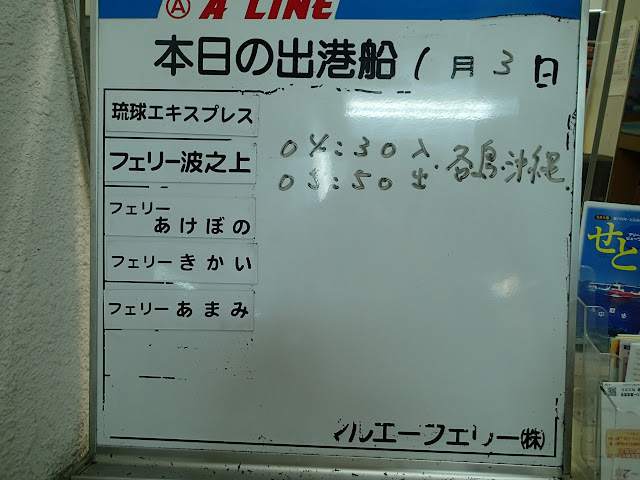 A A LINE
本日の出港船 1月3日
琉球エキスプレス
フェリー波之上
フェリー
あけぼの
フェリーきかい
フェリーあまみ
30入
05:50出
各島・沖縄
マルエーフェリー(株)
せと